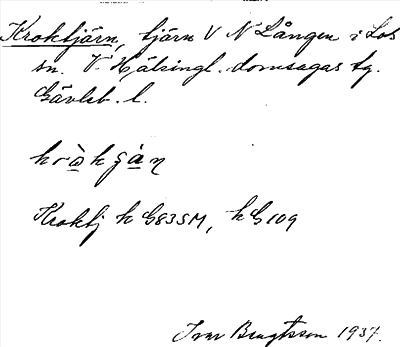 Kroktjärn, tjärn V N Lången i Los
sn. V. Hälsingl. domsagas tg.
Gävleb. l.
kròkʂàn
Kroktj k G83SM, k G 109
Ivar Bengtsson 1937.